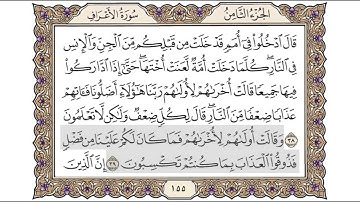 الجزء الثامن
سورة الأعراف
قَالَ ٱدۡخُلُوا۟ فِىٓ أُمَمٍ قَدۡ خَلَتۡ مِن قَبۡلِكُم مِّنَ ٱلۡجِنِّ وَٱلۡإِنسِ
فِى ٱلنَّارِ كُلَّمَا دَخَلَتۡ أُمَّةٌ لَّعَنَتۡ أُخۡتَهَا حَتَّىٰٓ إِذَا ٱدَّارَكُوا۟
فِيهَا جَمِيعًا قَالَتۡ أُخۡرَىٰهُمۡ لِأُولَىٰهُمۡ رَبَّنَا هَـٰٓؤُلَآءِ أَضَلُّونَا فَـَٔاتِهِمۡ
عَذَابًا ضِعۡفًا مِّنَ ٱلنَّارِ قَالَ لِكُلٍّ ضِعۡفٌ وَلَـٰكِن لَّا تَعۡلَمُونَ
٣٨ وَقَالَتۡ أُولَىٰهُمۡ لِأُخۡرَىٰهُمۡ فَمَا كَانَ لَكُمۡ عَلَيۡنَا مِن فَضۡلٍ
فَذُوقُوا۟ ٱلۡعَذَابَ بِمَا كُنتُمۡ تَكۡسِبُونَ ٣٩ إِنَّ ٱلَّذِينَ
١٥٥